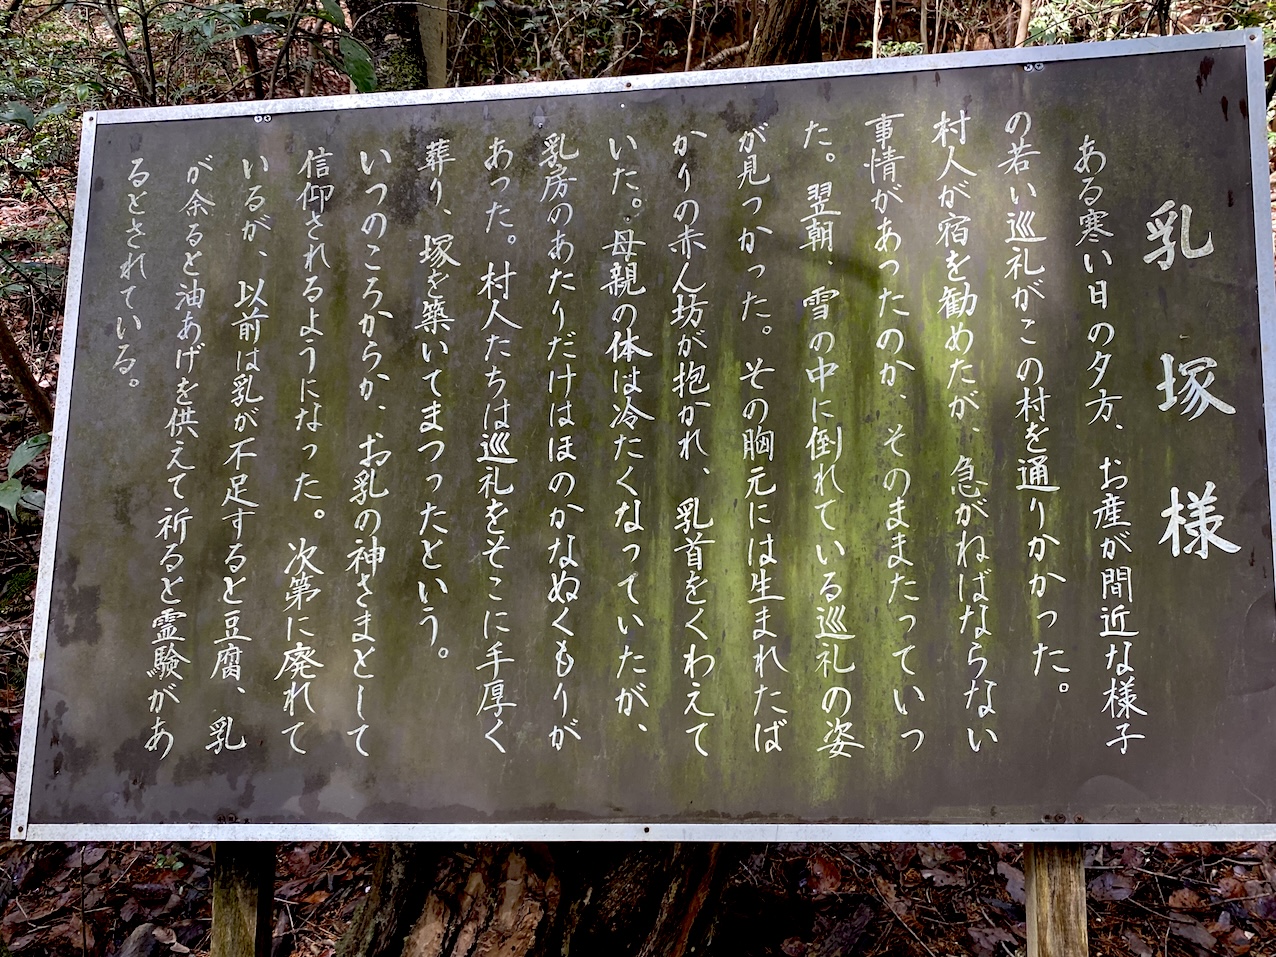 乳塚様
ある寒い日の夕方、お産が間近な様子
の若い巡礼がこの村を通りかかった。
村人が宿を勧めたが、急がねばならない
事情があったのか、そのままたっていっ
た。翌朝、雪の中に倒れている巡礼の姿
が見つかった。その胸元には生まれたば
かりの赤ん坊が抱かれ、乳首をくわえて
いた。母親の体は冷たくなっていたが、
乳房のあたりだけはほのかなぬくもりが
あった。村人たちは巡礼をそこに手厚く
葬り、塚を築いてまつったという。
いつのころからか、お乳の神さまとして
信仰されるようになった。次第に廃れて
いるが、以前は乳が不足すると豆腐、乳
が余ると油あげを供えて祈ると霊験があ
るとされている。